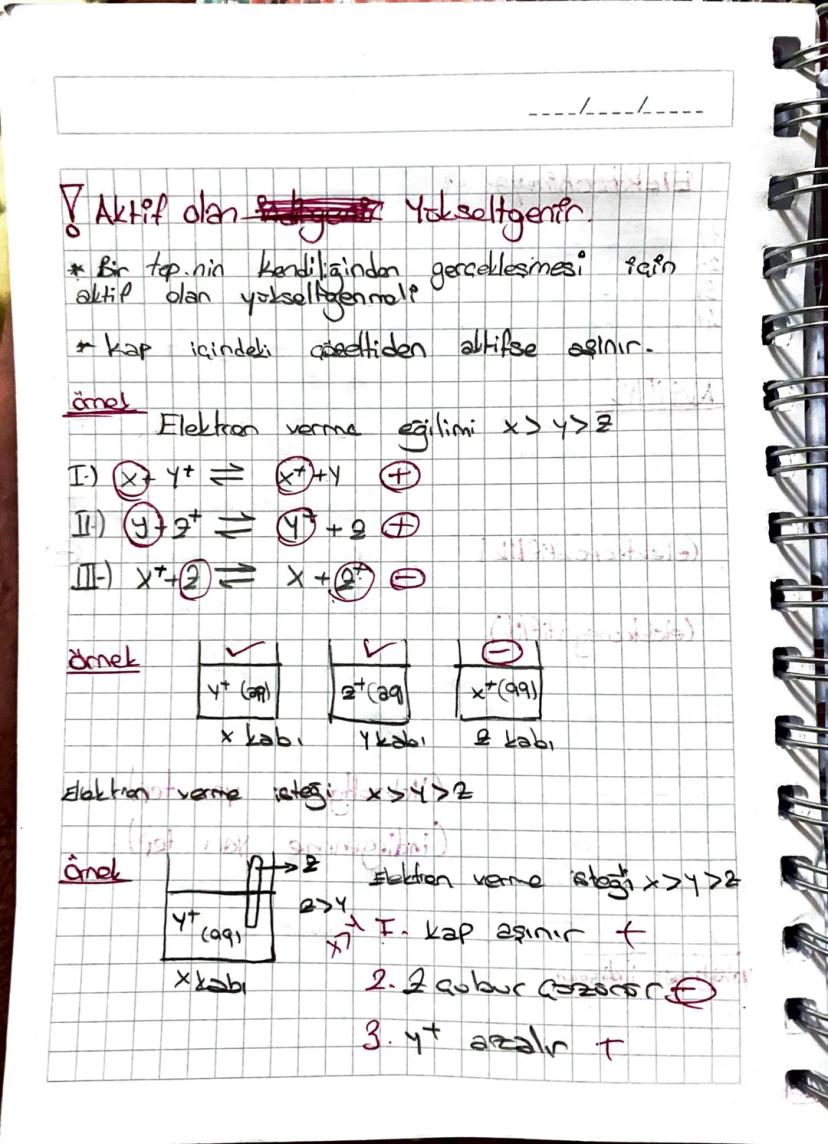 ----/----/-----
! Aktif olan Yükseltgenir.
* Bir tep.nin kendiliğinden gerçekleşmesi için
aktif olan yükseltgenmeli
* Kap içindeki çözeltiden aktifse aşınır.
örnek
Elektron verme eğilimi x > y > z
I-) x + y⁺ ⇌ x⁺ + y +
II-) y + z⁺ ⇌ y⁺ + z +
III-) x⁺ + z ⇌ x + z⁺ −
örnek ✓ ✓ −
y⁺ (aq) z⁺ (aq x⁺ (aq)
x kabı y kabı z kabı
Elektron verme isteği x > y > z
örnek → z Elektron verme isteği x > y > z
y⁺ (aq) z > y x > y I. Kap aşınır +
x kabı 2. z çubuk çözünür −
3. y⁺ azalır +